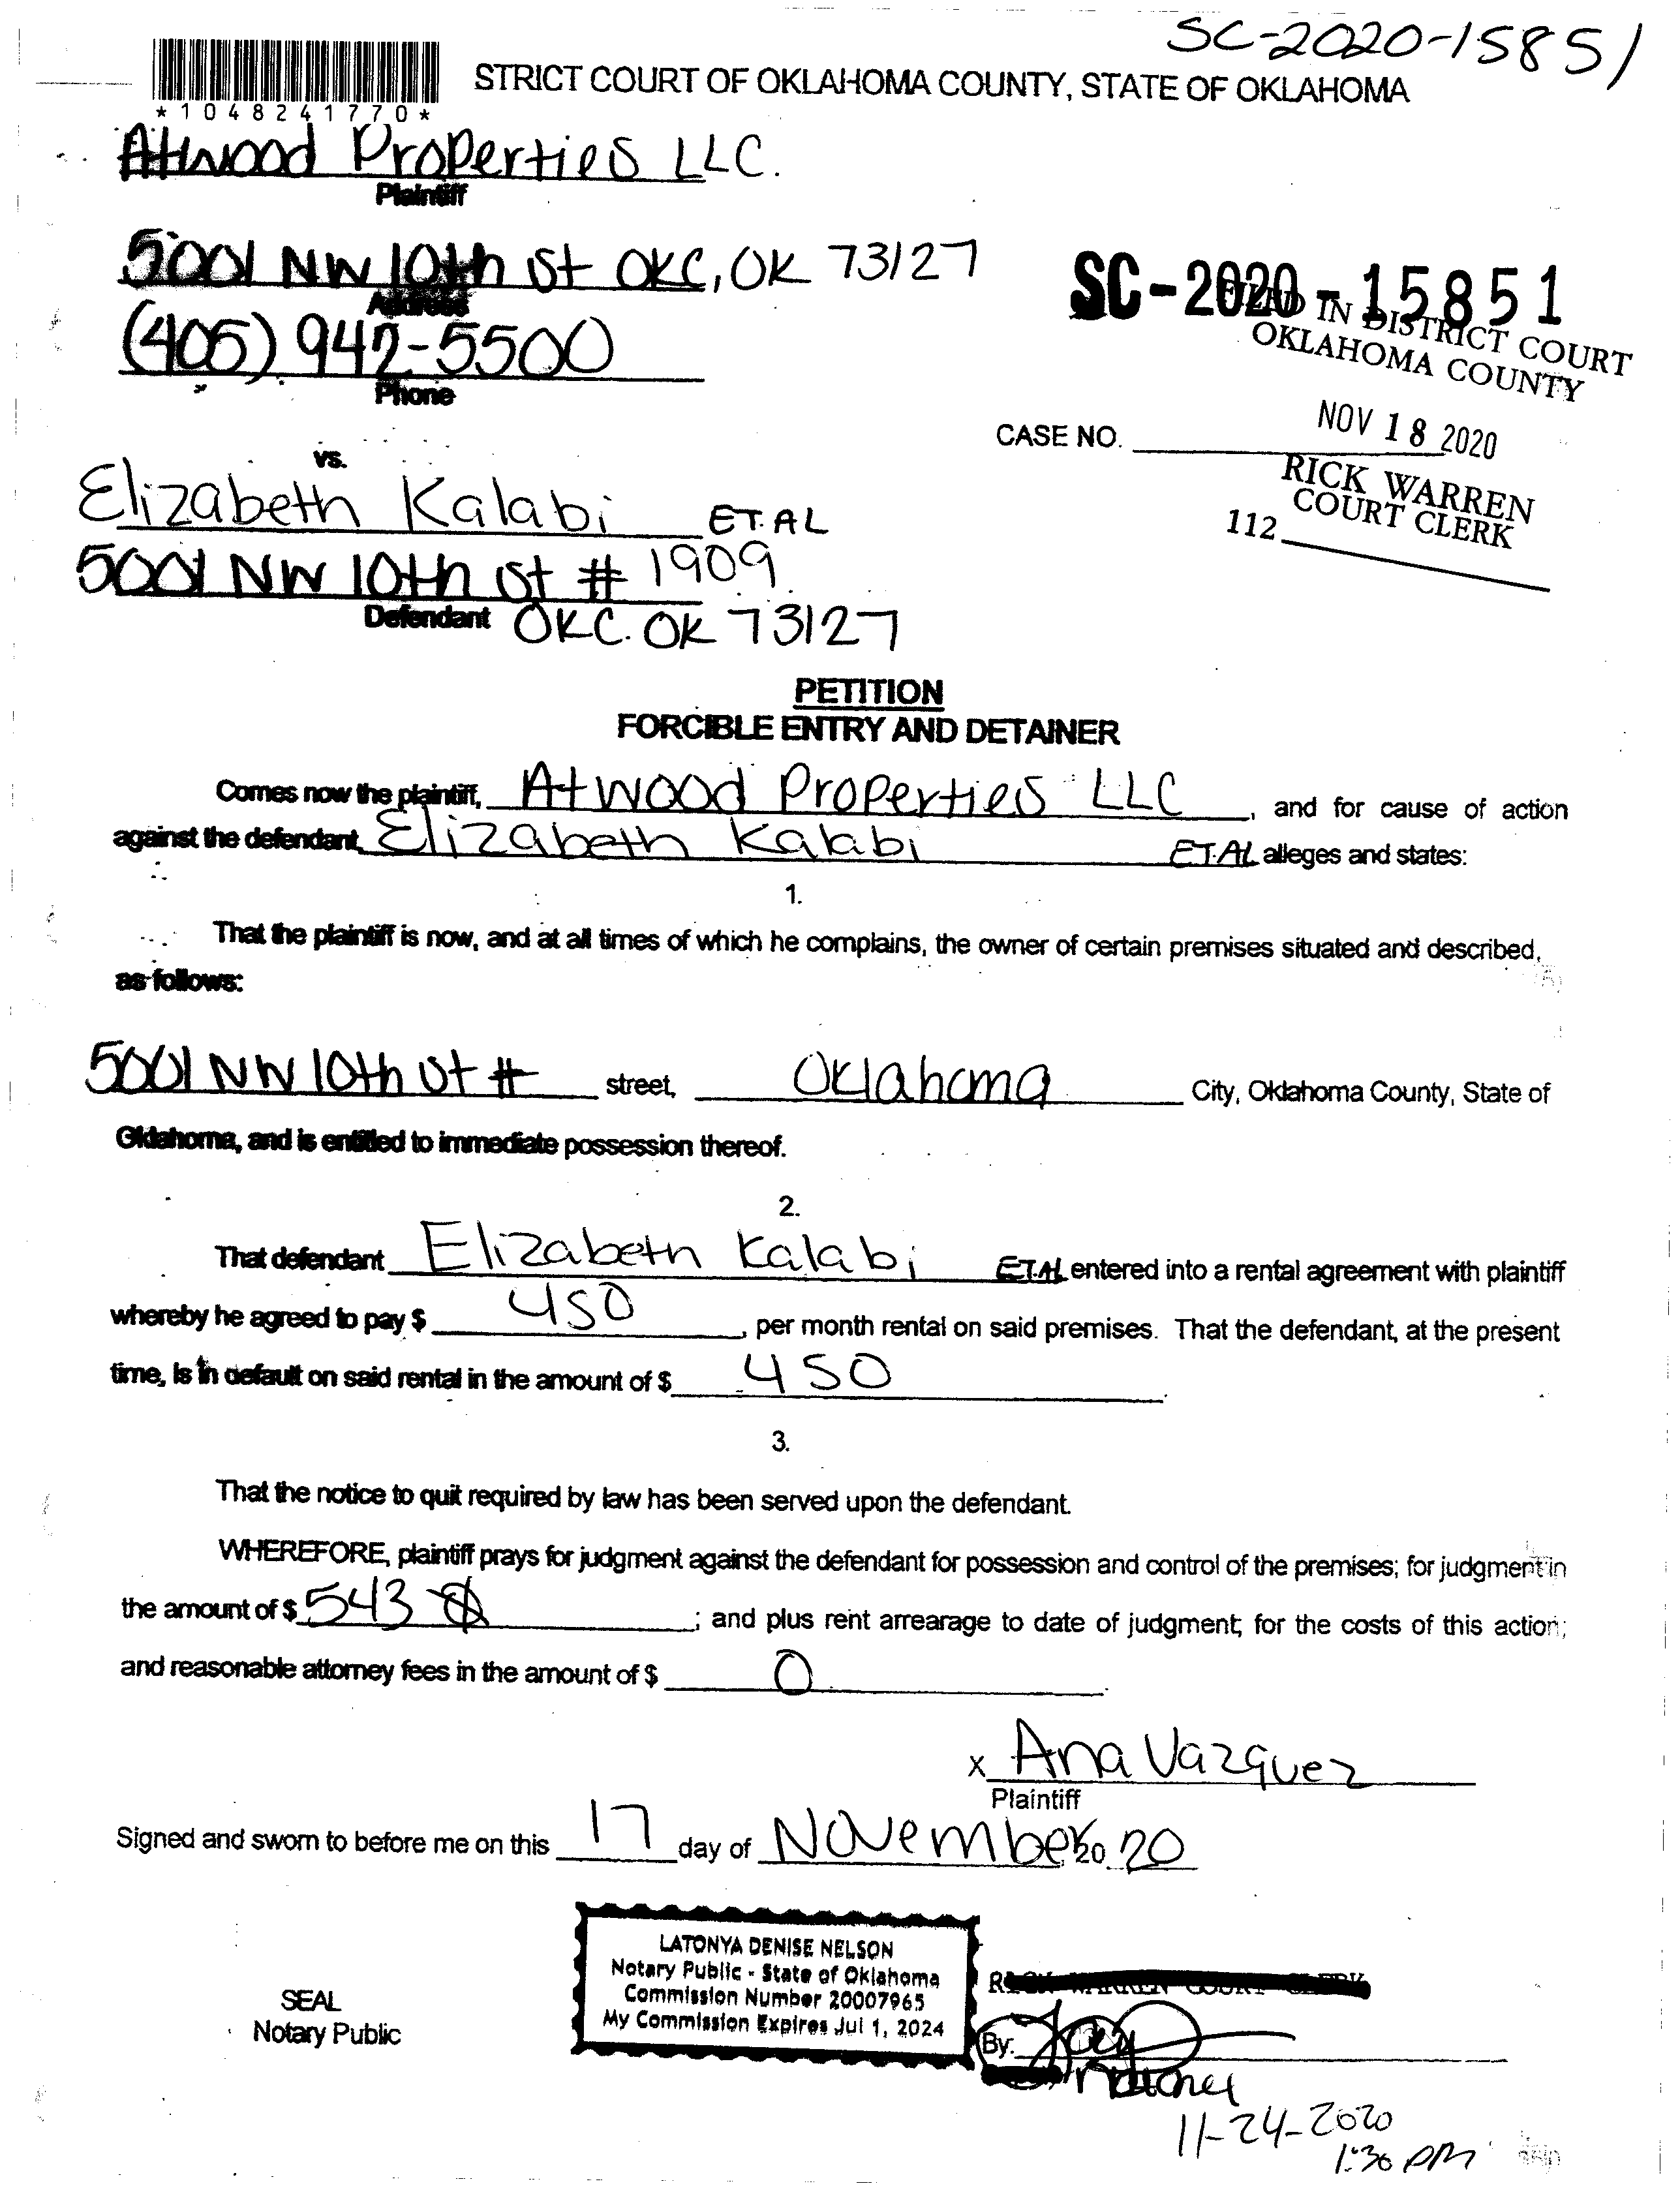 SC-2020-15851
STRICT COURT OF OKLAHOMA COUNTY, STATE OF OKLAHOMA
*1048241770*
Atwood Properties LLC.
Plaintiff
5001 NW 10th St OKC, OK 73127
Address
(405) 942-5500
Phone
SC-2020-15851
FILED IN DISTRICT COURT
OKLAHOMA COUNTY
NOV 18 2020
CASE NO.
RICK WARREN
COURT CLERK
112
vs.
Elizabeth Kalabi ET.AL
5001 NW 10th St # 1909
Defendant OKC. OK 73127
PETITION
FORCIBLE ENTRY AND DETAINER
Comes now the plaintiff, Atwood Properties LLC, and for cause of action
against the defendant, Elizabeth Kalabi ET.AL alleges and states:
1.
That the plaintiff is now, and at all times of which he complains, the owner of certain premises situated and described,
as follows:
5001 NW 10th St # street, Oklahoma City, Oklahoma County, State of
Oklahoma, and is entitled to immediate possession thereof.
2.
That defendant Elizabeth Kalabi ET.AL entered into a rental agreement with plaintiff
whereby he agreed to pay $ 450, per month rental on said premises. That the defendant, at the present
time, is in default on said rental in the amount of $ 450.
3.
That the notice to quit required by law has been served upon the defendant.
WHEREFORE, plaintiff prays for judgment against the defendant for possession and control of the premises; for judgment in
the amount of $ 543; and plus rent arrearage to date of judgment; for the costs of this action;
and reasonable attorney fees in the amount of $ 0.
x Ana Vazquez
Plaintiff
Signed and sworn to before me on this 17 day of November, 20 20
LATONYA DENISE NELSON
Notary Public - State of Oklahoma
Commission Number 20007965
My Commission Expires Jul 1, 2024
SEAL
Notary Public
RICK WARREN COURT CLERK
By:
11-24-2020
1:30 PM